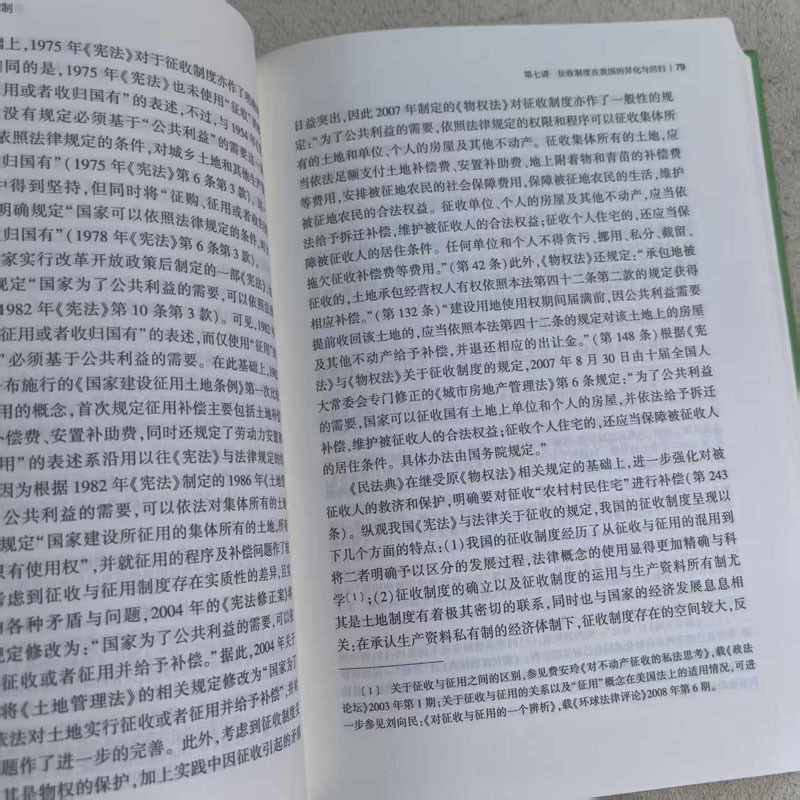 制
础上，1975年《宪法》对于征收制度亦作了明确
相同的是，1975年《宪法》也未使用“征收”
用或者收归国有”的表述，不过，与1954年
没有规定必须基于“公共利益”的需要这一
依照法律规定的条件，对城乡土地和其他生产
（1975年《宪法》第6条第3款）。
中得到坚持，但同时将“征购、征用或者收归国
明确规定“国家可以依照法律规定的条件，对
收归国有”（1978年《宪法》第6条第3款）。
家实行改革开放政策后制定的一部《宪法》，
定“国家为了公共利益的需要，可以依照法
1982年《宪法》第10条第3款）。可见，1982
征用或者收归国有”的表述，而仅使用“征用”
”必须基于公共利益的需要。在此基础上，1982
布施行的《国家建设征用土地条例》第一次比
用的概念，首次规定征用补偿主要包括土地补
偿费、安置补助费，同时还规定了劳动力安置
用”的表述系沿用以往《宪法》与法律规定的
因为根据1982年《宪法》制定的1986年《土地
公共利益的需要，可以依法对集体所有的土
规定“国家建设所征用的集体所有的土地，所
有使用权”，并就征用的程序及补偿问题作了
考虑到征收与征用制度存在实质性的差异，且
各种矛盾与问题，2004年的《宪法修正案》
定修改为：“国家为了公共利益的需要，可以
征收或者征用并给予补偿。”据此，2004年关于
将《土地管理法》的相关规定修改为“国家为了
依法对土地实行征收或者征用并给予补偿”，并
题作了进一步的完善。此外，考虑到征收制度
其是物权的保护，加上实践中因征收引起的矛盾
第七讲 征收制度在我国的异化与回归 | 79
日益突出，因此2007年制定的《物权法》对征收制度亦作了一般性的规
定：“为了公共利益的需要，依照法律规定的权限和程序可以征收集体所
有的土地和单位、个人的房屋及其他不动产。征收集体所有的土地，应
当依法足额支付土地补偿费、安置补助费、地上附着物和青苗的补偿费
等费用，安排被征地农民的社会保障费用，保障被征地农民的生活，维护
被征地农民的合法权益。征收单位、个人的房屋及其他不动产，应当依
法给予拆迁补偿，维护被征收人的合法权益；征收个人住宅的，还应当保
障被征收人的居住条件。任何单位和个人不得贪污、挪用、私分、截留、
拖欠征收补偿费等费用。”（第42条）此外，《物权法》还规定：“承包地被
征收的，土地承包经营权人有权依照本法第四十二条第二款的规定获得
相应补偿。”（第132条）“建设用地使用权期间届满前，因公共利益需要
提前收回该土地的，应当依照本法第四十二条的规定对该土地上的房屋
及其他不动产给予补偿，并退还相应的出让金。”（第148条）根据《宪
法》与《物权法》关于征收制度的规定，2007年8月30日由十届全国人
大常委会专门修正的《城市房地产管理法》第6条规定：“为了公共利益
的需要，国家可以征收国有土地上单位和个人的房屋，并依法给予拆迁
补偿，维护被征收人的合法权益；征收个人住宅的，还应当保障被征收人
的居住条件。具体办法由国务院规定。”
《民法典》在继受原《物权法》相关规定的基础上，进一步强化对被
征收人的救济和保护，明确要对征收“农村村民住宅”进行补偿（第243
条）。纵观我国《宪法》与法律关于征收的规定，我国的征收制度呈现以
下几个方面的特点：（1）我国的征收制度经历了从征收与征用的混用到
将二者明确予以区分的发展过程，法律概念的使用显得更加精确与科
学〔1〕；（2）征收制度的确立以及征收制度的运用与生产资料所有制尤
其是土地制度有着极其密切的联系，同时也与国家的经济发展息息相
关：在承认生产资料私有制的经济体制下，征收制度存在的空间较大，反
〔1〕 关于征收与征用之间的区别，参见费安玲《对不动产征收的私法思考》，载《政法
论坛》2003年第1期；关于征收与征用的关系以及“征用”概念在美国法上的适用情况，可进
一步参见刘向民：《对征收与征用的一个辨析》，载《环球法律评论》2008年第6期。